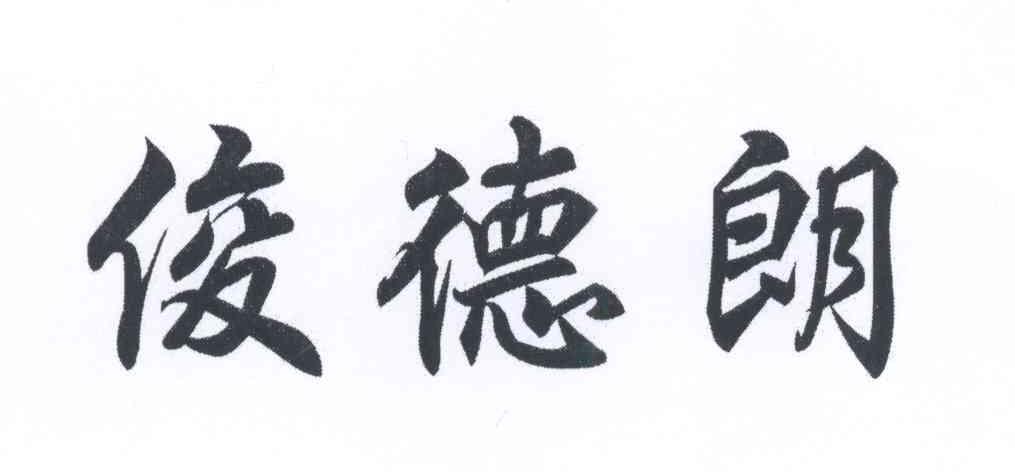 俊德朗